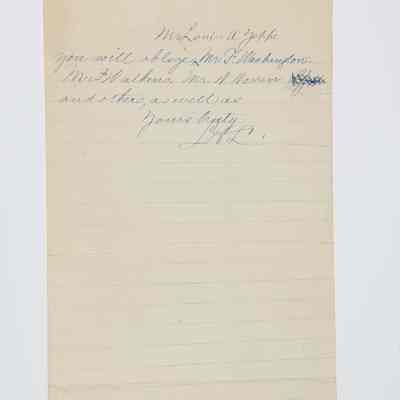 Mr Louis A
you will oblige Mr F. Washington
Mr F Watkins Mr A Warren
and others, as well as
Yours truly